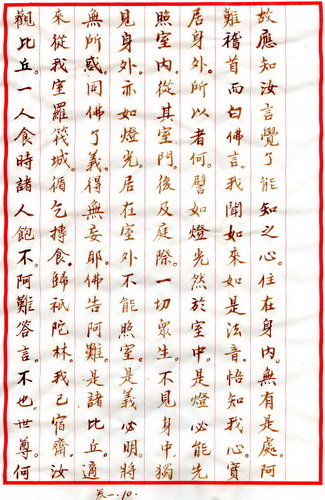 故應知汝言覺了能知之心。住在身內。無有是處。阿
難稽首而白佛言。我聞如來如是法音。悟知我心。實
居身外。所以者何。譬如燈光然於室中。是燈必能先
照室內。從其室門。後及庭除。一切眾生。不見身中。獨
見身外。亦如燈光。居在室外。不能照室。是義必明。將
無所惑。同佛了義。得無妄耶。佛告阿難。是諸比丘。適
來從我室羅筏城。循乞摶食。歸祇陀林。我已宿齋。汝
觀比丘。一人食時諸人飽不。阿難答言。不也。世尊。何
卷一.10.